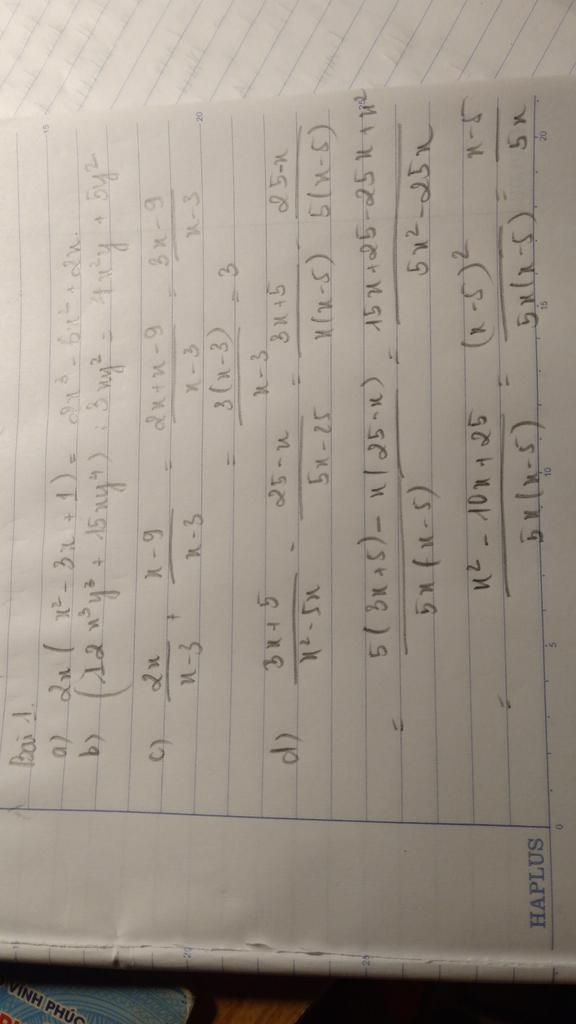 Bài 1.
a) 2x(x² - 3x + 1) = 2x³ - 6x² + 2x.
b) (12x³y³ + 15xy⁴) : 3xy² = 4x²y + 5y²
c) 2x/x-3 + x-9/x-3 = 2x+x-9/x-3 = 3x-9/x-3
= 3(x-3)/x-3 = 3
d) 3x+5/x²-5x - 25-x/5x-25 = 3x+5/x(x-5) 25-x/5(x-5)
= 5(3x+5)-x(25-x)/5x(x-5) = 15x+25-25x+x²/5x²-25x
= x²-10x+25/5x(x-5) = (x-5)²/5x(x-5) = x-5/5x
HAPLUS
VĨNH PHÚC